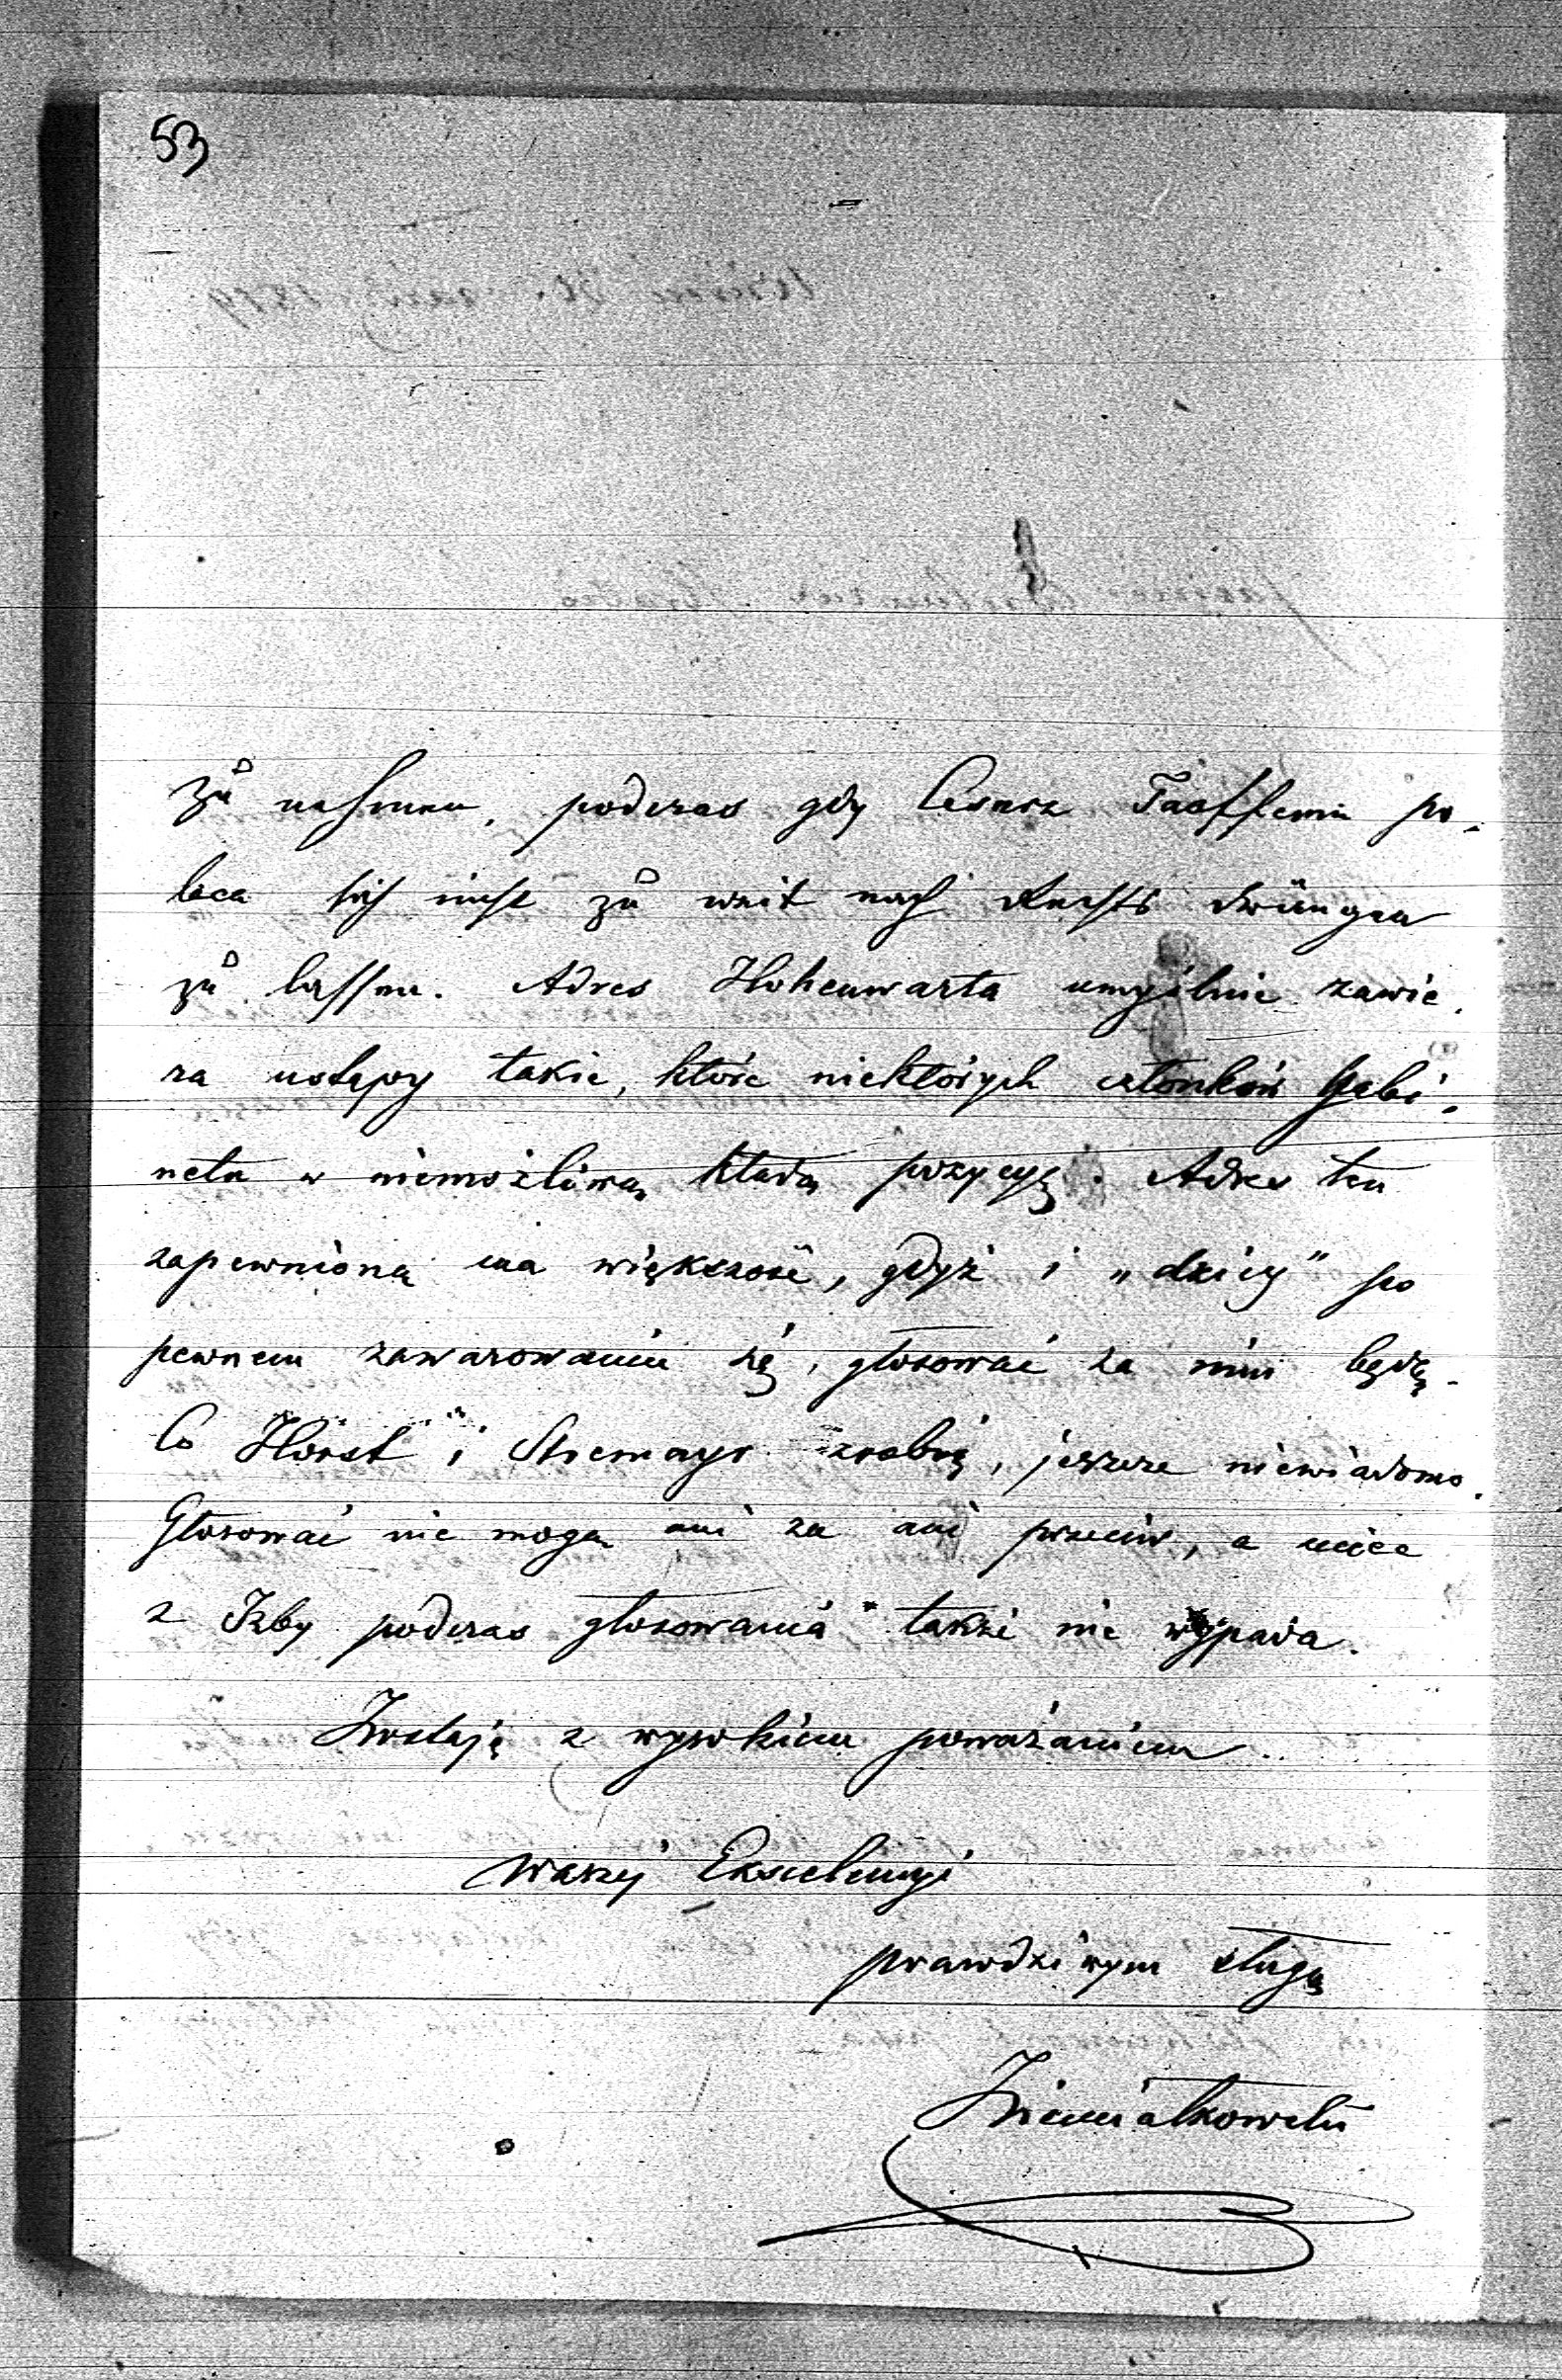 53
zu nehmen, podczas gdy Cesarz Taaffemu po-
leca sich nicht zu weit nach Rechts drängen
zu lassen. Adres Hohenwarta umyślnie zawie-
ra ustępy takie, które niektórych członków Gabi-
netu w niemożliwą kładą pozycyę. Adres ten
zapewnioną ma większość, gdyż i „dzicy" po
pewnem zawarowaniu się, głosować za nim będą.
Co Horst i Stremayr zrobią, jeszcze niewiadomo.
Głosować nie mogą ani za ani przeciw, a uciec
z Izby podczas głosowania także nie wypada.
Zostaję z wysokiem poważaniem
Waszej Excelencyi
prawdziwym sługą
Ziemiałkowski